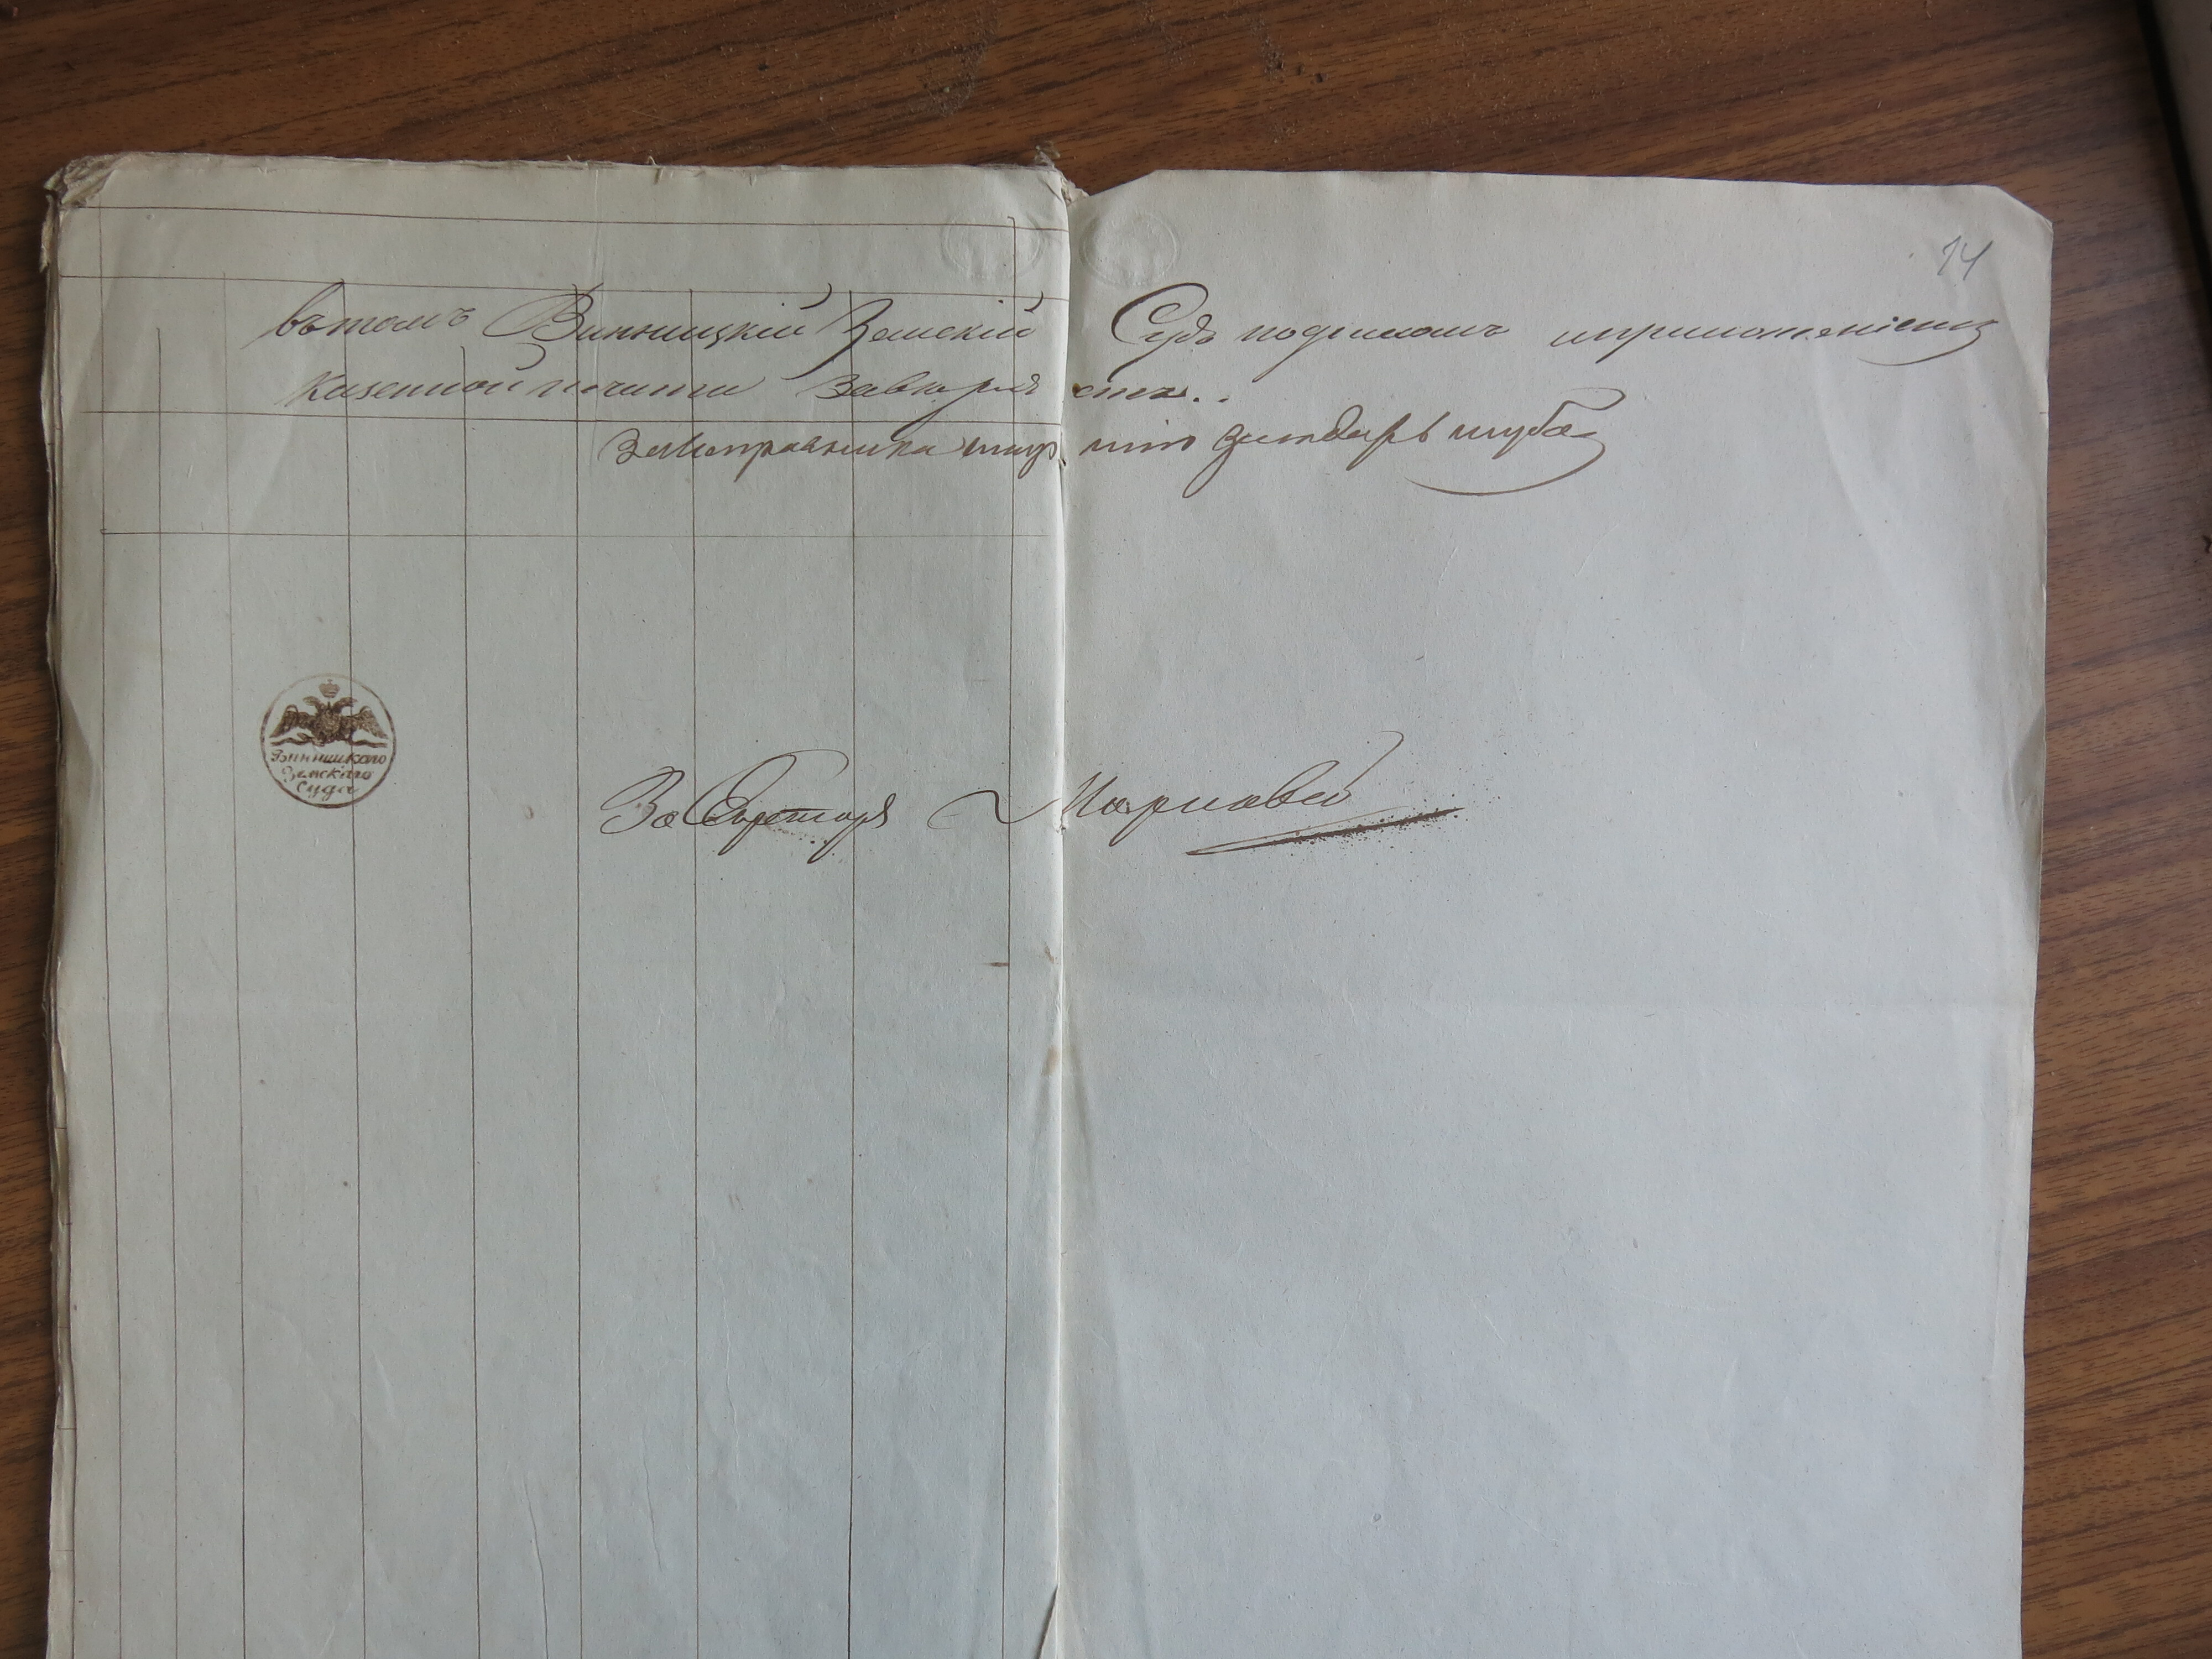 14
въ томъ Винницкій Земскій Судъ подписомъ и приложеніемъ
казенной печати завѣряетъ.
За Исправника
Винницкаго
Земскаго
Суда
За Секретаря